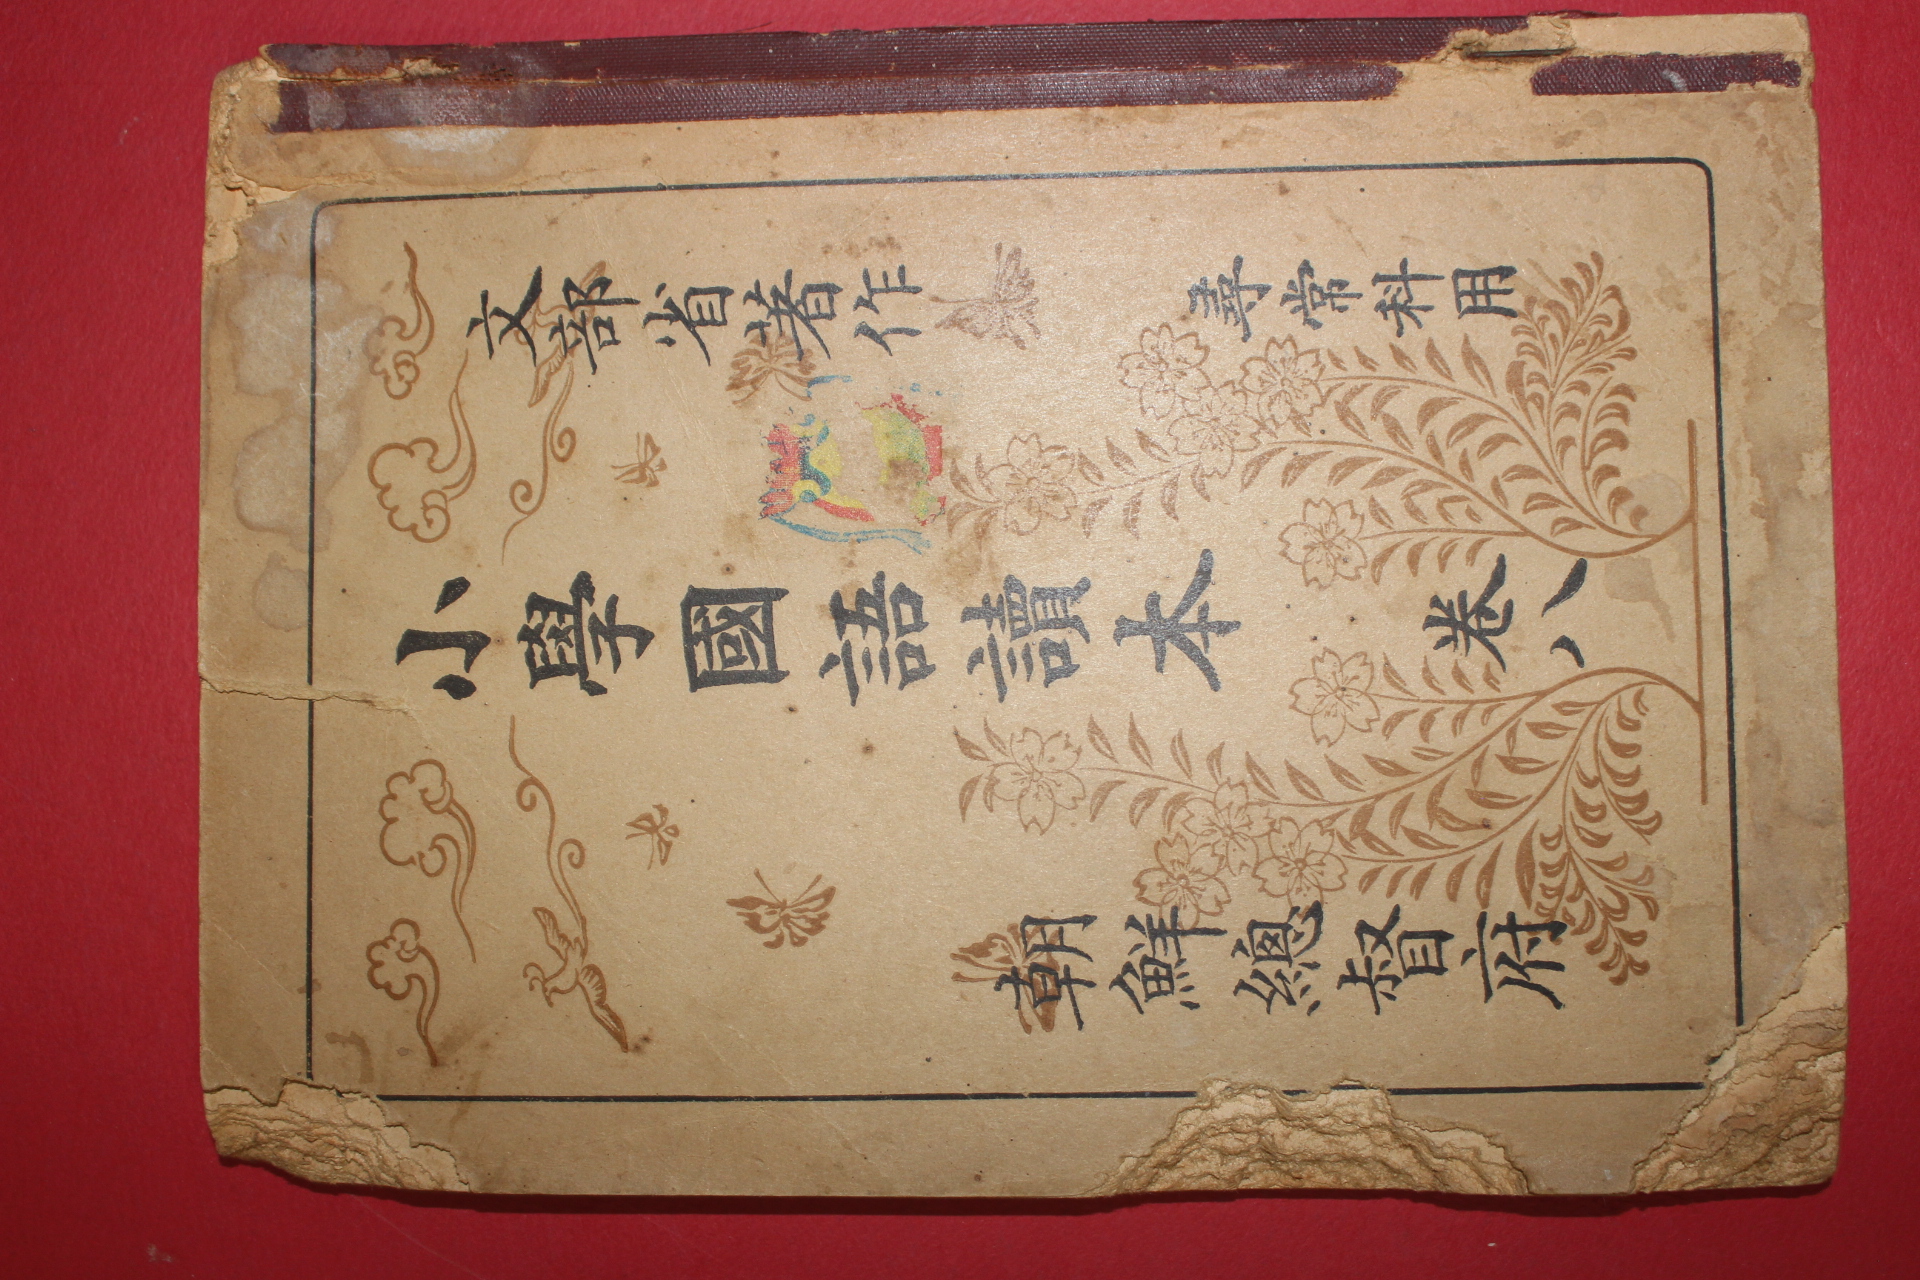 文部省著作
尋常科用
小學國語讀本
卷八
朝鮮總督府